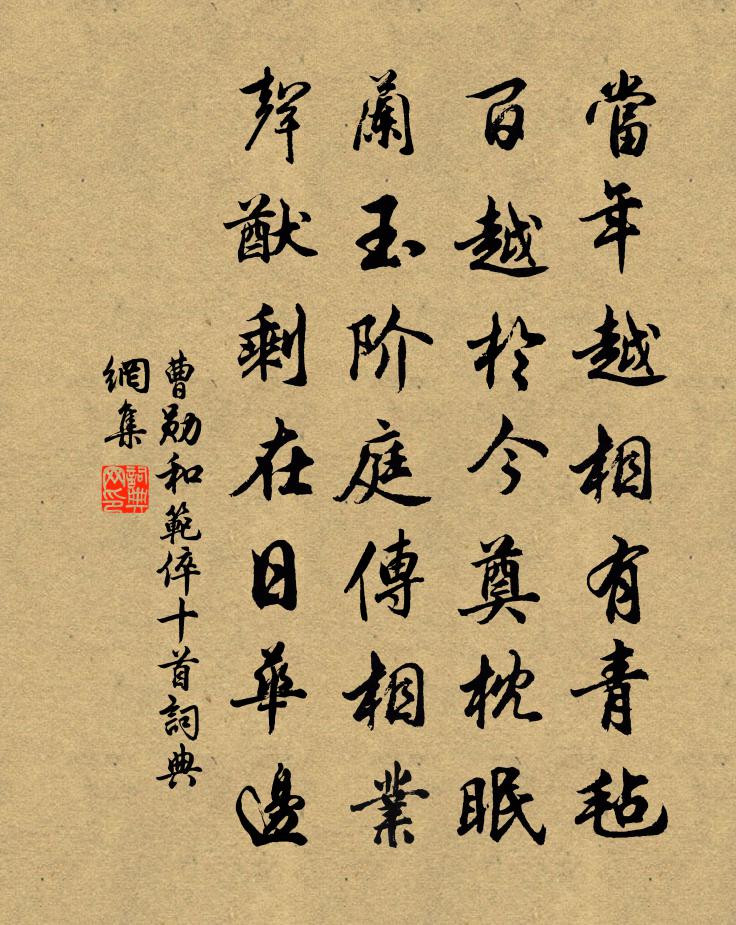 當年越相有青毡
百越於今奠枕眠
蘭玉阶庭傳相業
聲猷剩在日華邊
曹勋和範倅十首詞典
網集
詞典
网印